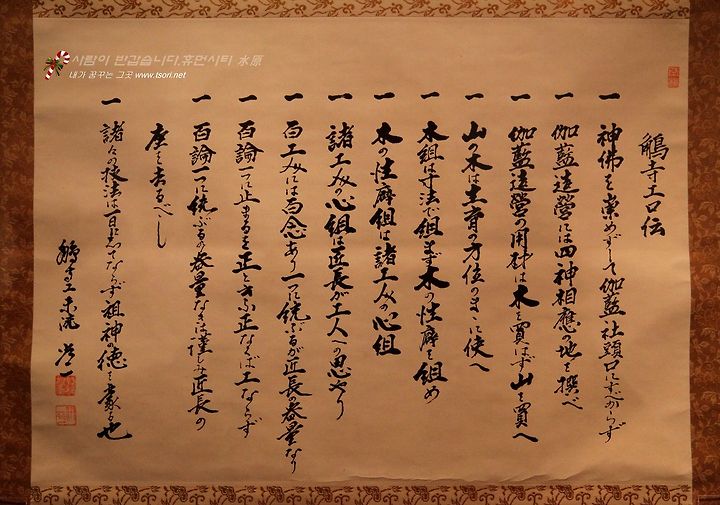 사람이 반갑습니다.휴먼시티 水原
내가 꿈꾸는 그곳 www.tsori.net
鵤寺工口伝
一 神佛を崇めずして伽藍社頭口にすべからず
一 伽藍造營には四神相應の地を撰べ
一 伽藍造營の用材は木を買はず山を買へ
一 山の木は土育の方位のまゝに使へ
一 木組は寸法で組まず木の性癖を組め
一 木の性癖組は諸工人の心組
一 諸工人の心組は匠長が工人への思やり
一 百工人には百念あり一に統ぶるが匠長の器量なり
一 百論一に止まるを正と云ふ正なくば工ならず
一 百論一に統ぶるの器量なくば謹しみ匠長の
座を去るべし
一 諸々の技法は一日にしてならず祖神徳を蒙る也
鵤寺工末流 常一